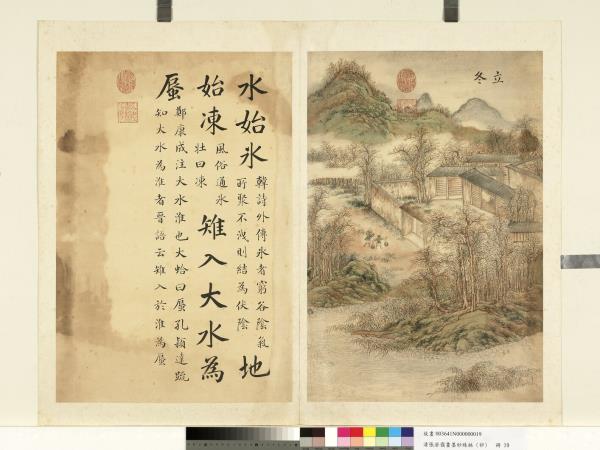 立冬
水始冰
韓詩外傳冰者窮谷陰氣
所聚不洩則結為伏陰
地
始凍
風俗通冰
壯曰凍
雉入大水為
蜃
鄭康成注大水淮也大蛤曰蜃孔穎達疏
知大水為淮者晉語云雉入於淮為蜃
故畫 003641N000000019
清張若靄畫墨妙珠林（卯） 冊